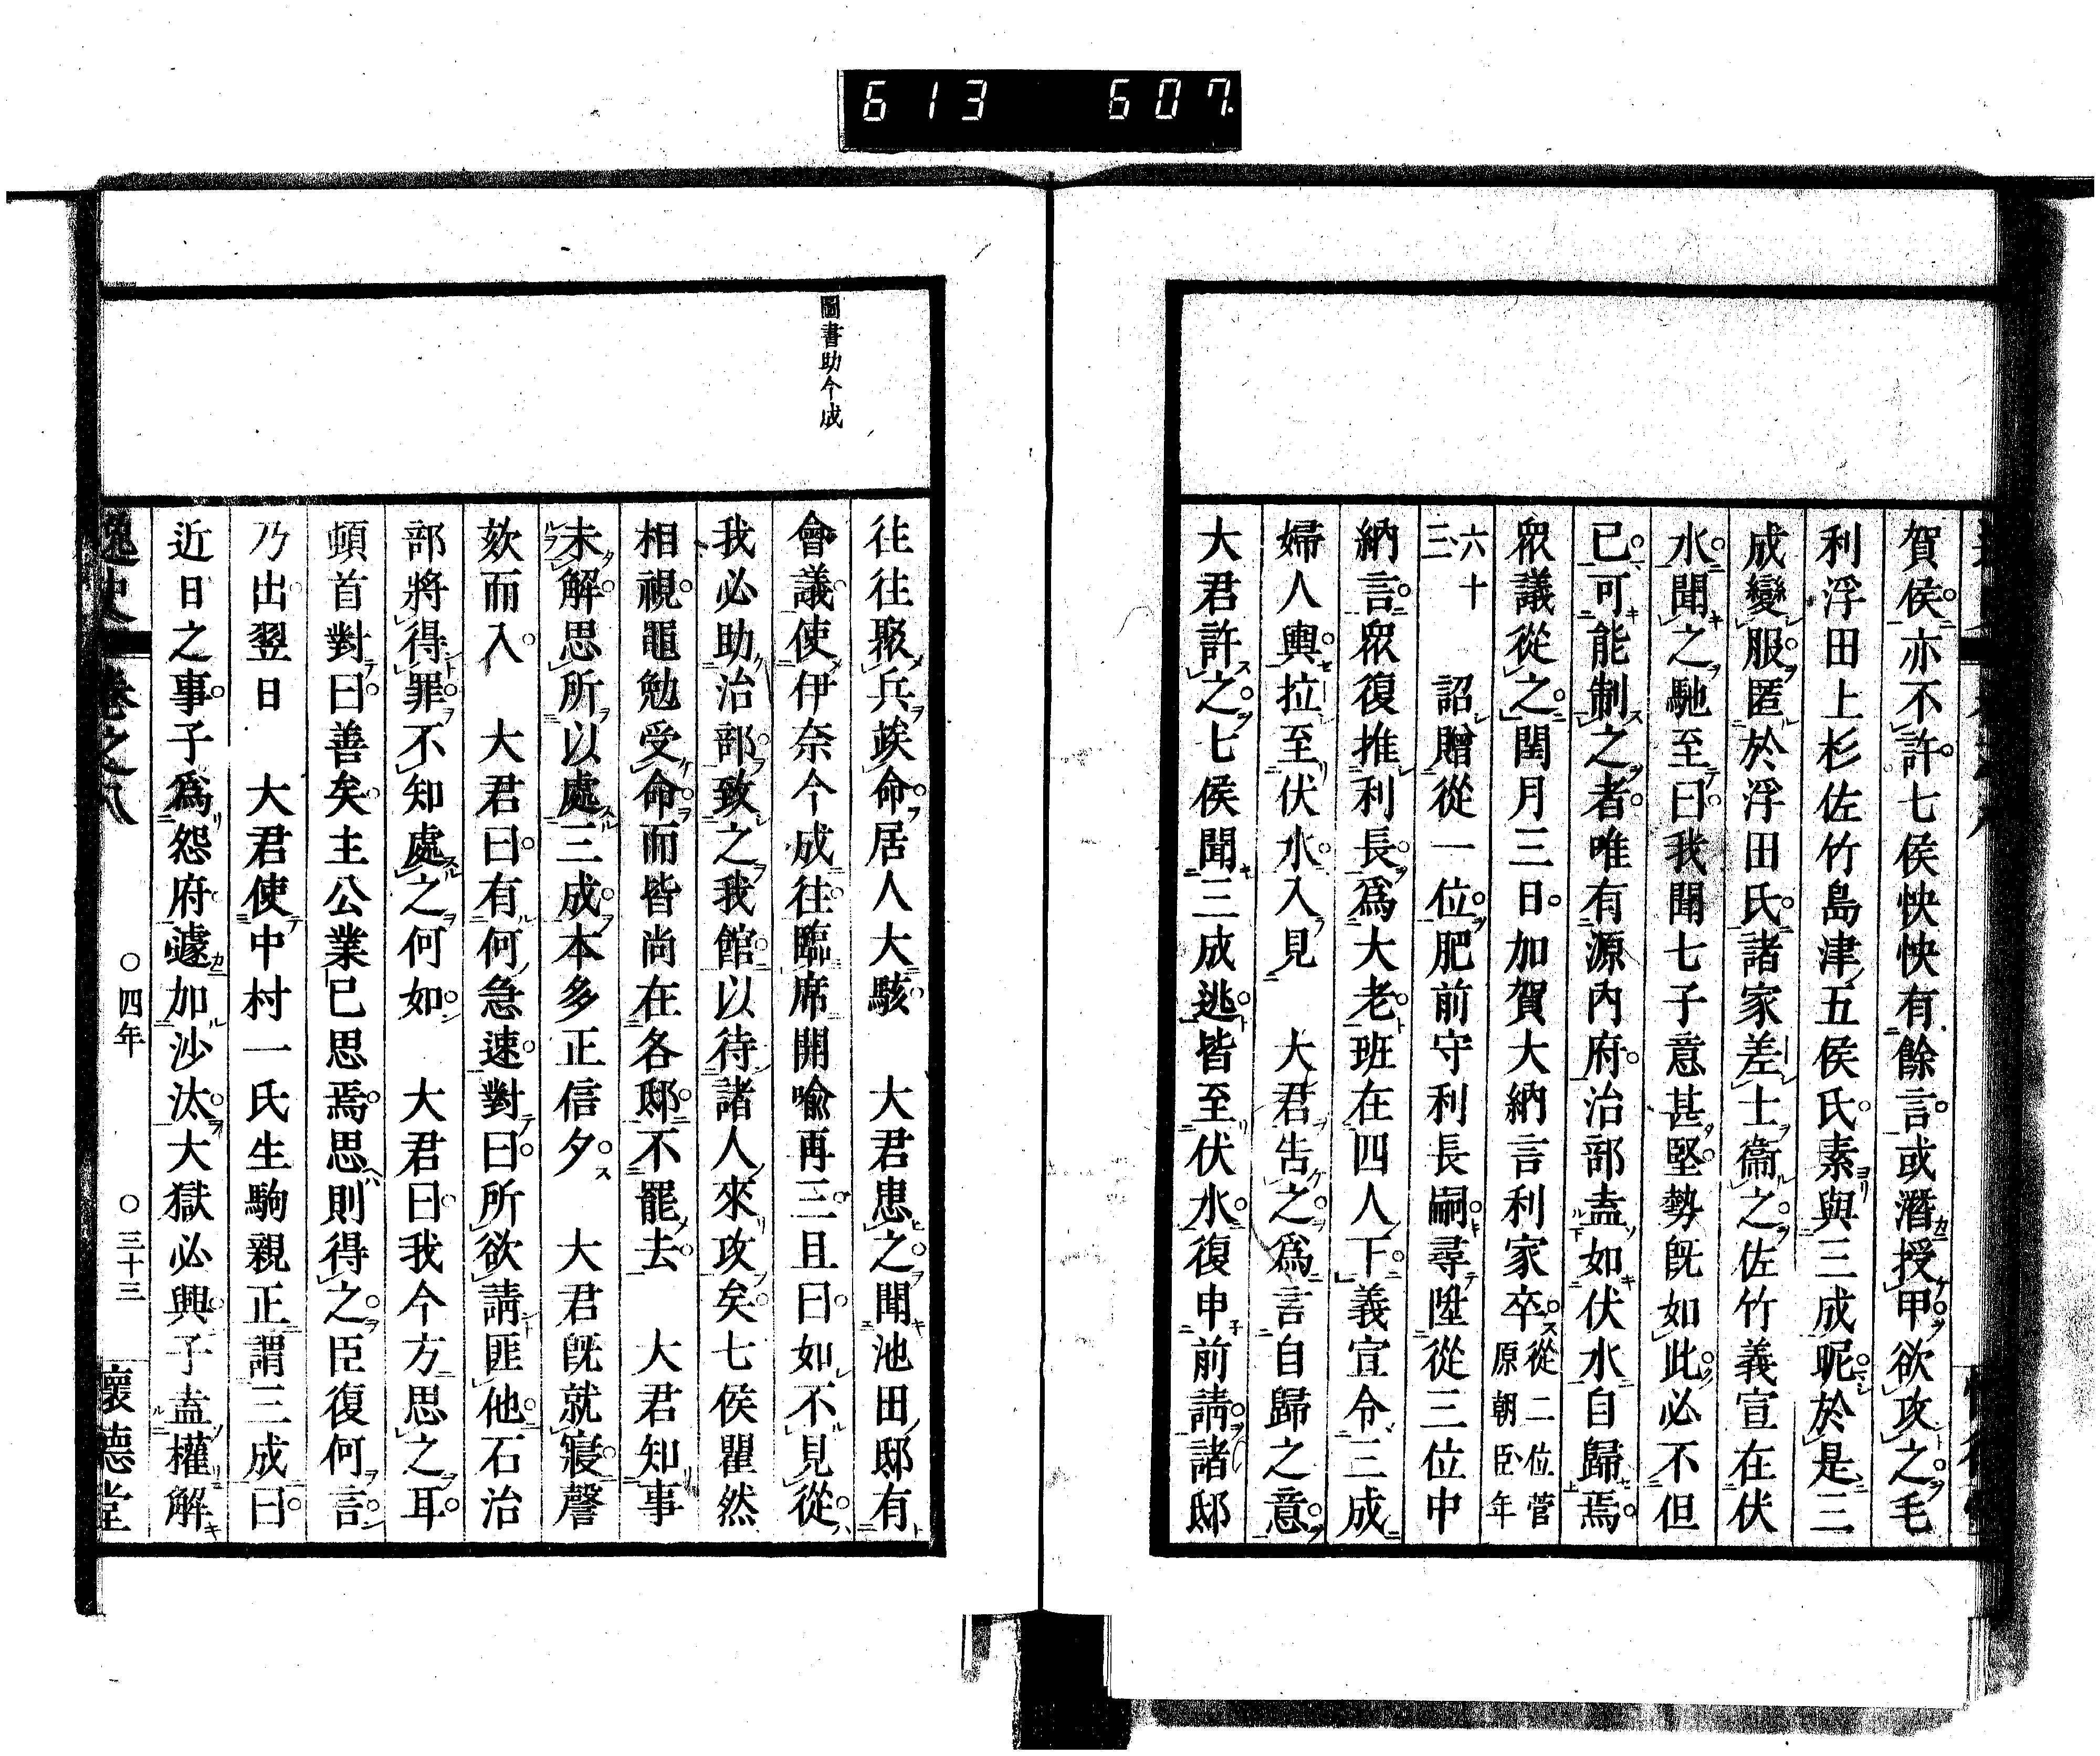 613 607
賀侯亦不許七侯怏怏有餘言或潛授甲欲攻之毛
利浮田上杉佐竹島津五侯氏素與三成昵於是三
成變服匿於浮田氏諸家差士衞之佐竹義宣在伏
水聞之馳至曰我聞七子意甚堅勢旣如此必不但
已可能制之者唯有源內府治部盍如伏水自歸焉
衆議從之閏月三日加賀大納言利家卒從二位菅原朝臣年
六十三 詔贈從一位肥前守利長嗣尋陞從三位中
納言衆復推利長爲大老班在四人下義宣令三成
婦人輿拉至伏水入見 大君告之爲言自歸之意
大君許之七侯聞三成逃皆至伏水復申前請諸邸
圖書助今成
往往聚兵竢命居人大駭 大君患之聞池田邸有
會議使伊奈今成往臨席開喩再三且曰如不見從
我必助治部致之我館以待諸人來攻矣七侯瞿然
相視黽勉受命而皆尚在各邸不罷去 大君知事
未解思所以處三成本多正信夕 大君旣就寢謦
欬而入 大君曰有何急速對曰所欲請匪他石治
部將得罪不知處之何如 大君曰我今方思之耳
頓首對曰善矣主公業已思焉思則得之臣復何言
乃出翌日 大君使中村一氏生駒親正謂三成曰
近日之事子爲怨府遽加沙汰大獄必興子盍權解
逸史 卷之八 ○四年 ○三十三 懷德堂